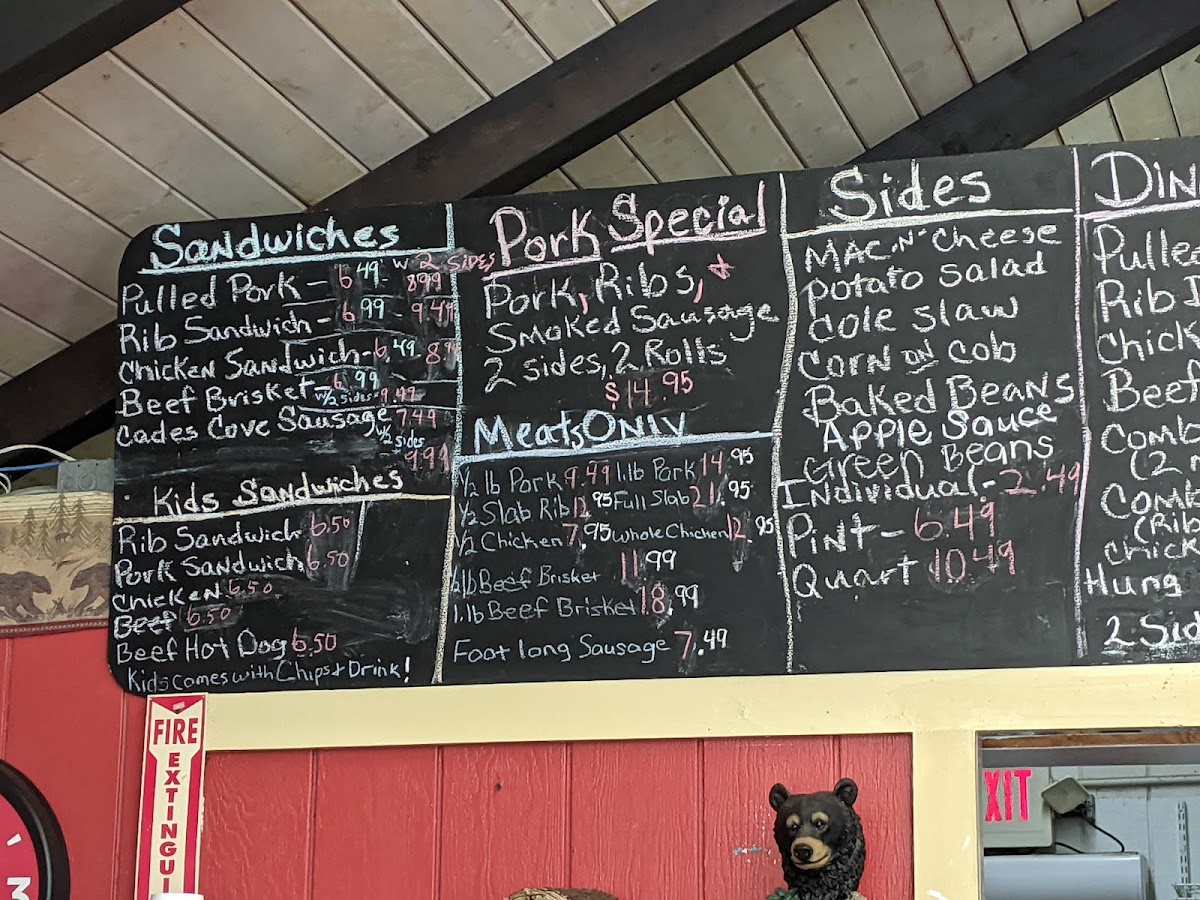 Sandwiches
Pulled Pork - 6.49 w 2 Sides 8.99
Rib Sandwich - 6.99 - 9.49
Chicken Sandwich - 6.49 8.99
Beef Brisket - 6.99 w/2 sides - 9.49
Cades Cove Sausage 7.49
w/2 sides
- 9.99
Kids Sandwiches
Rib Sandwich 6.50
Pork Sandwich 6.50
Chicken 6.50
Beef 6.50
Beef Hot Dog 6.50
Kids comes with Chips + Drink!
Pork Special
Pork, Ribs, +
Smoked Sausage
2 sides, 2 Rolls
$14.95
Meats ONLY
1/2 lb Pork 9.49 1.lb Pork 14.95
1/2 Slab Rib 12.95 Full Slab 21.95
1/2 Chicken 7.95 Whole Chicken 12.95
11.99
1/2 lb Beef Brisket
1.lb Beef Brisket 18.99
Foot long Sausage 7.49
Sides
MAC-N-Cheese
Potato Salad
Cole slaw
Corn on Cob
Baked Beans
Apple Sauce
Green Beans
Individual - 2.49
Pint - 6.49
Quart 10.49
Din
Pulled
Rib D
Chick
Beef
Comb
(2 m
Comb
(Rib
Chick
Hung
2 Sid
FIRE
EXTINGUI
XIT
3